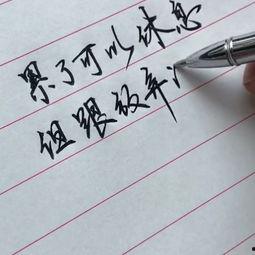 累了可以休息
组跟放弃